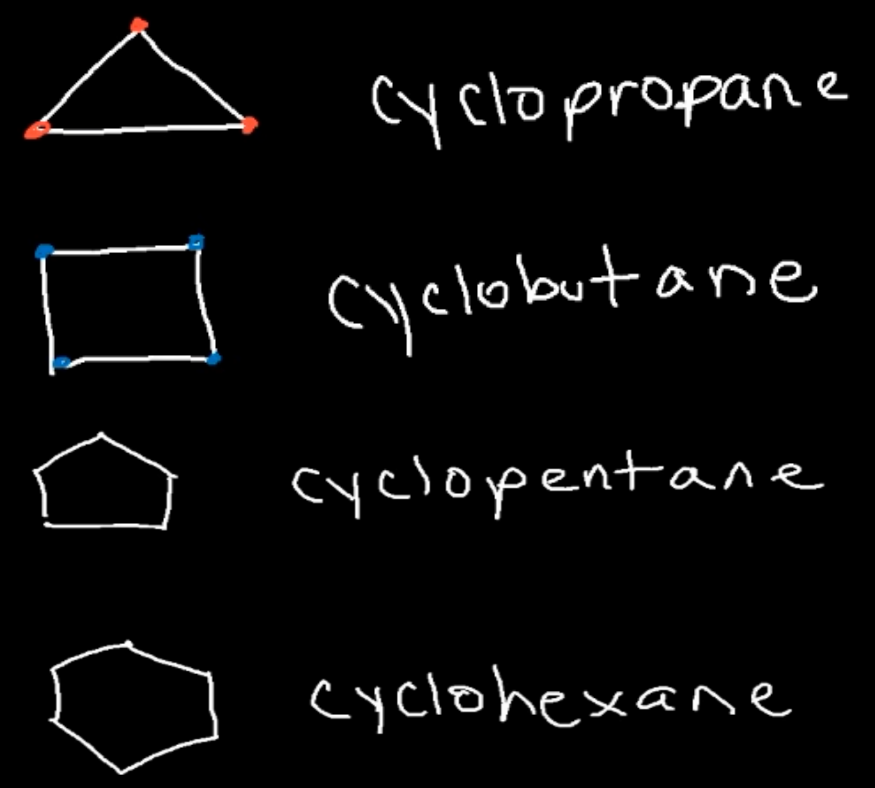 cyclopropane
cyclobutane
cyclopentane
cyclohexane